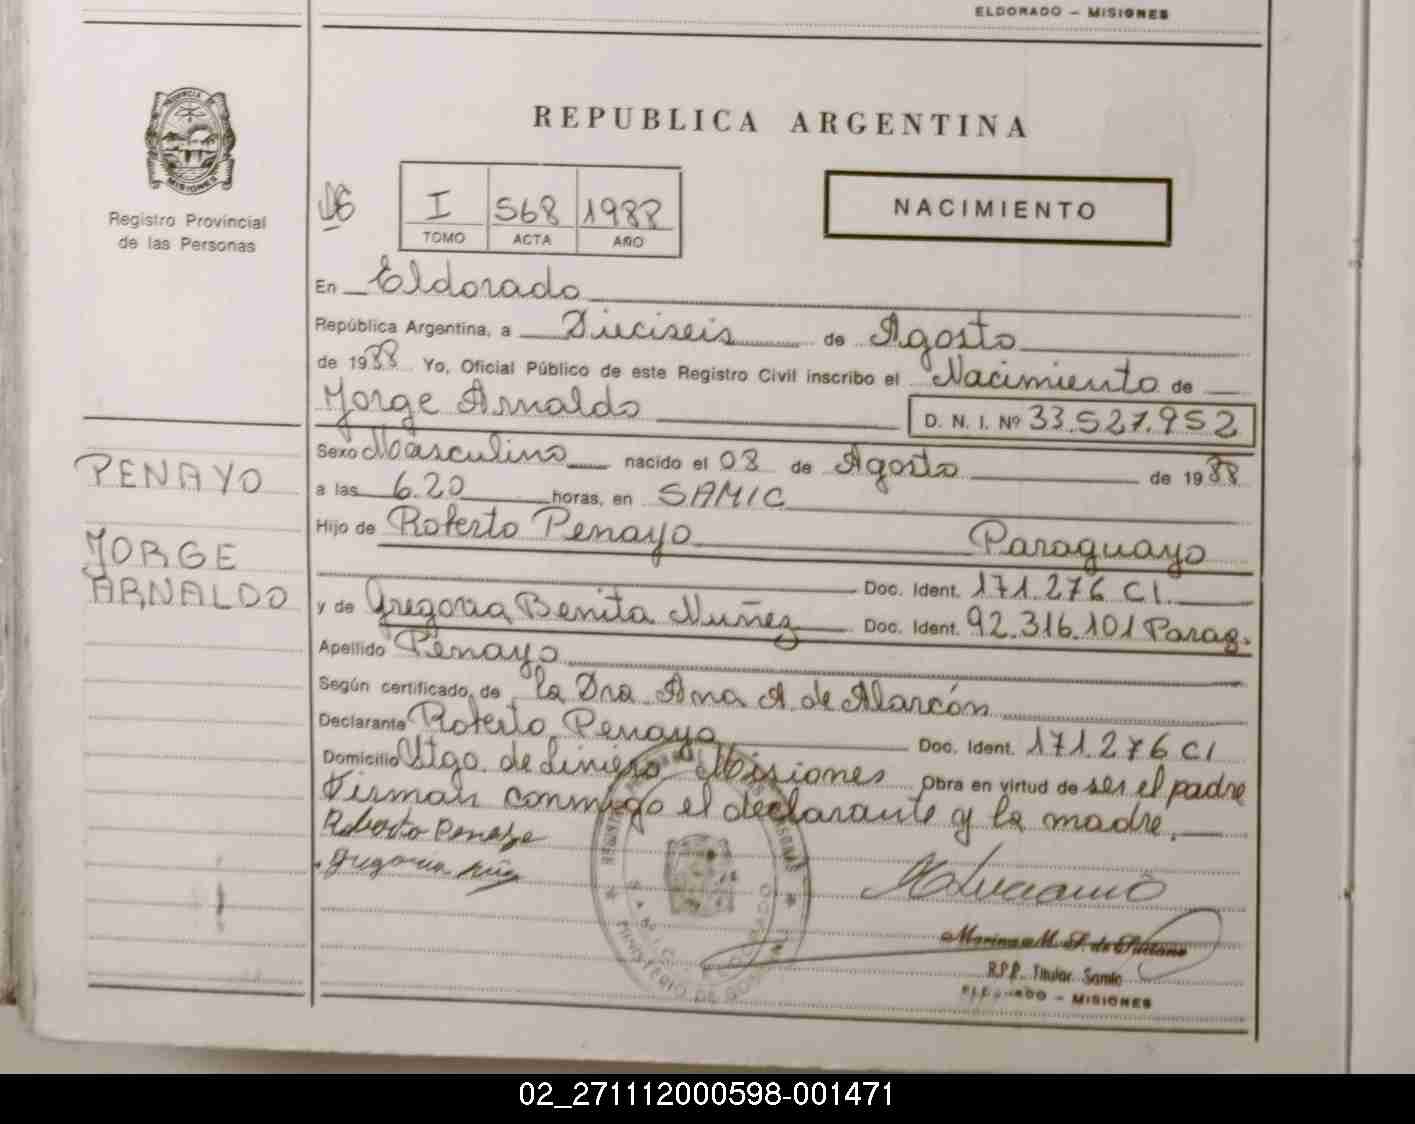 ELDORADO - MISIONES
PROVINCIA DE
MISIONES
Registro Provincial
de las Personas
REPUBLICA ARGENTINA
I 568 1988
TOMO ACTA AÑO
NACIMIENTO
En Eldorado
República Argentina, a Dieciseis de Agosto
de 1988 Yo, Oficial Público de este Registro Civil inscribo el Nacimiento de
Jorge Arnaldo D. N. I. Nº 33.527.952
Sexo Masculino nacido el 08 de Agosto de 1988
a las 6.20 horas, en SAMIC
Hijo de Roberto Penayo Paraguayo
Doc. Ident. 171.276 CI.
y de Gregoria Benita Nuñez Doc. Ident. 92.316.101 Parag.
Apellido Penayo
Según certificado de la Dra Ana A de Alarcón
Declarante Roberto Penayo Doc. Ident. 171.276 CI
Domicilio Stgo. de Liniers Misiones Obra en virtud de ser el padre
Firman conmigo el declarante y la madre.
Roberto Penayo
Gregoria
PENAYO
JORGE
ARNALDO
MINISTERIO DE
Marina M. de
R.P.P. Titular Samic
ELDORADO - MISIONES
02_271112000598-001471